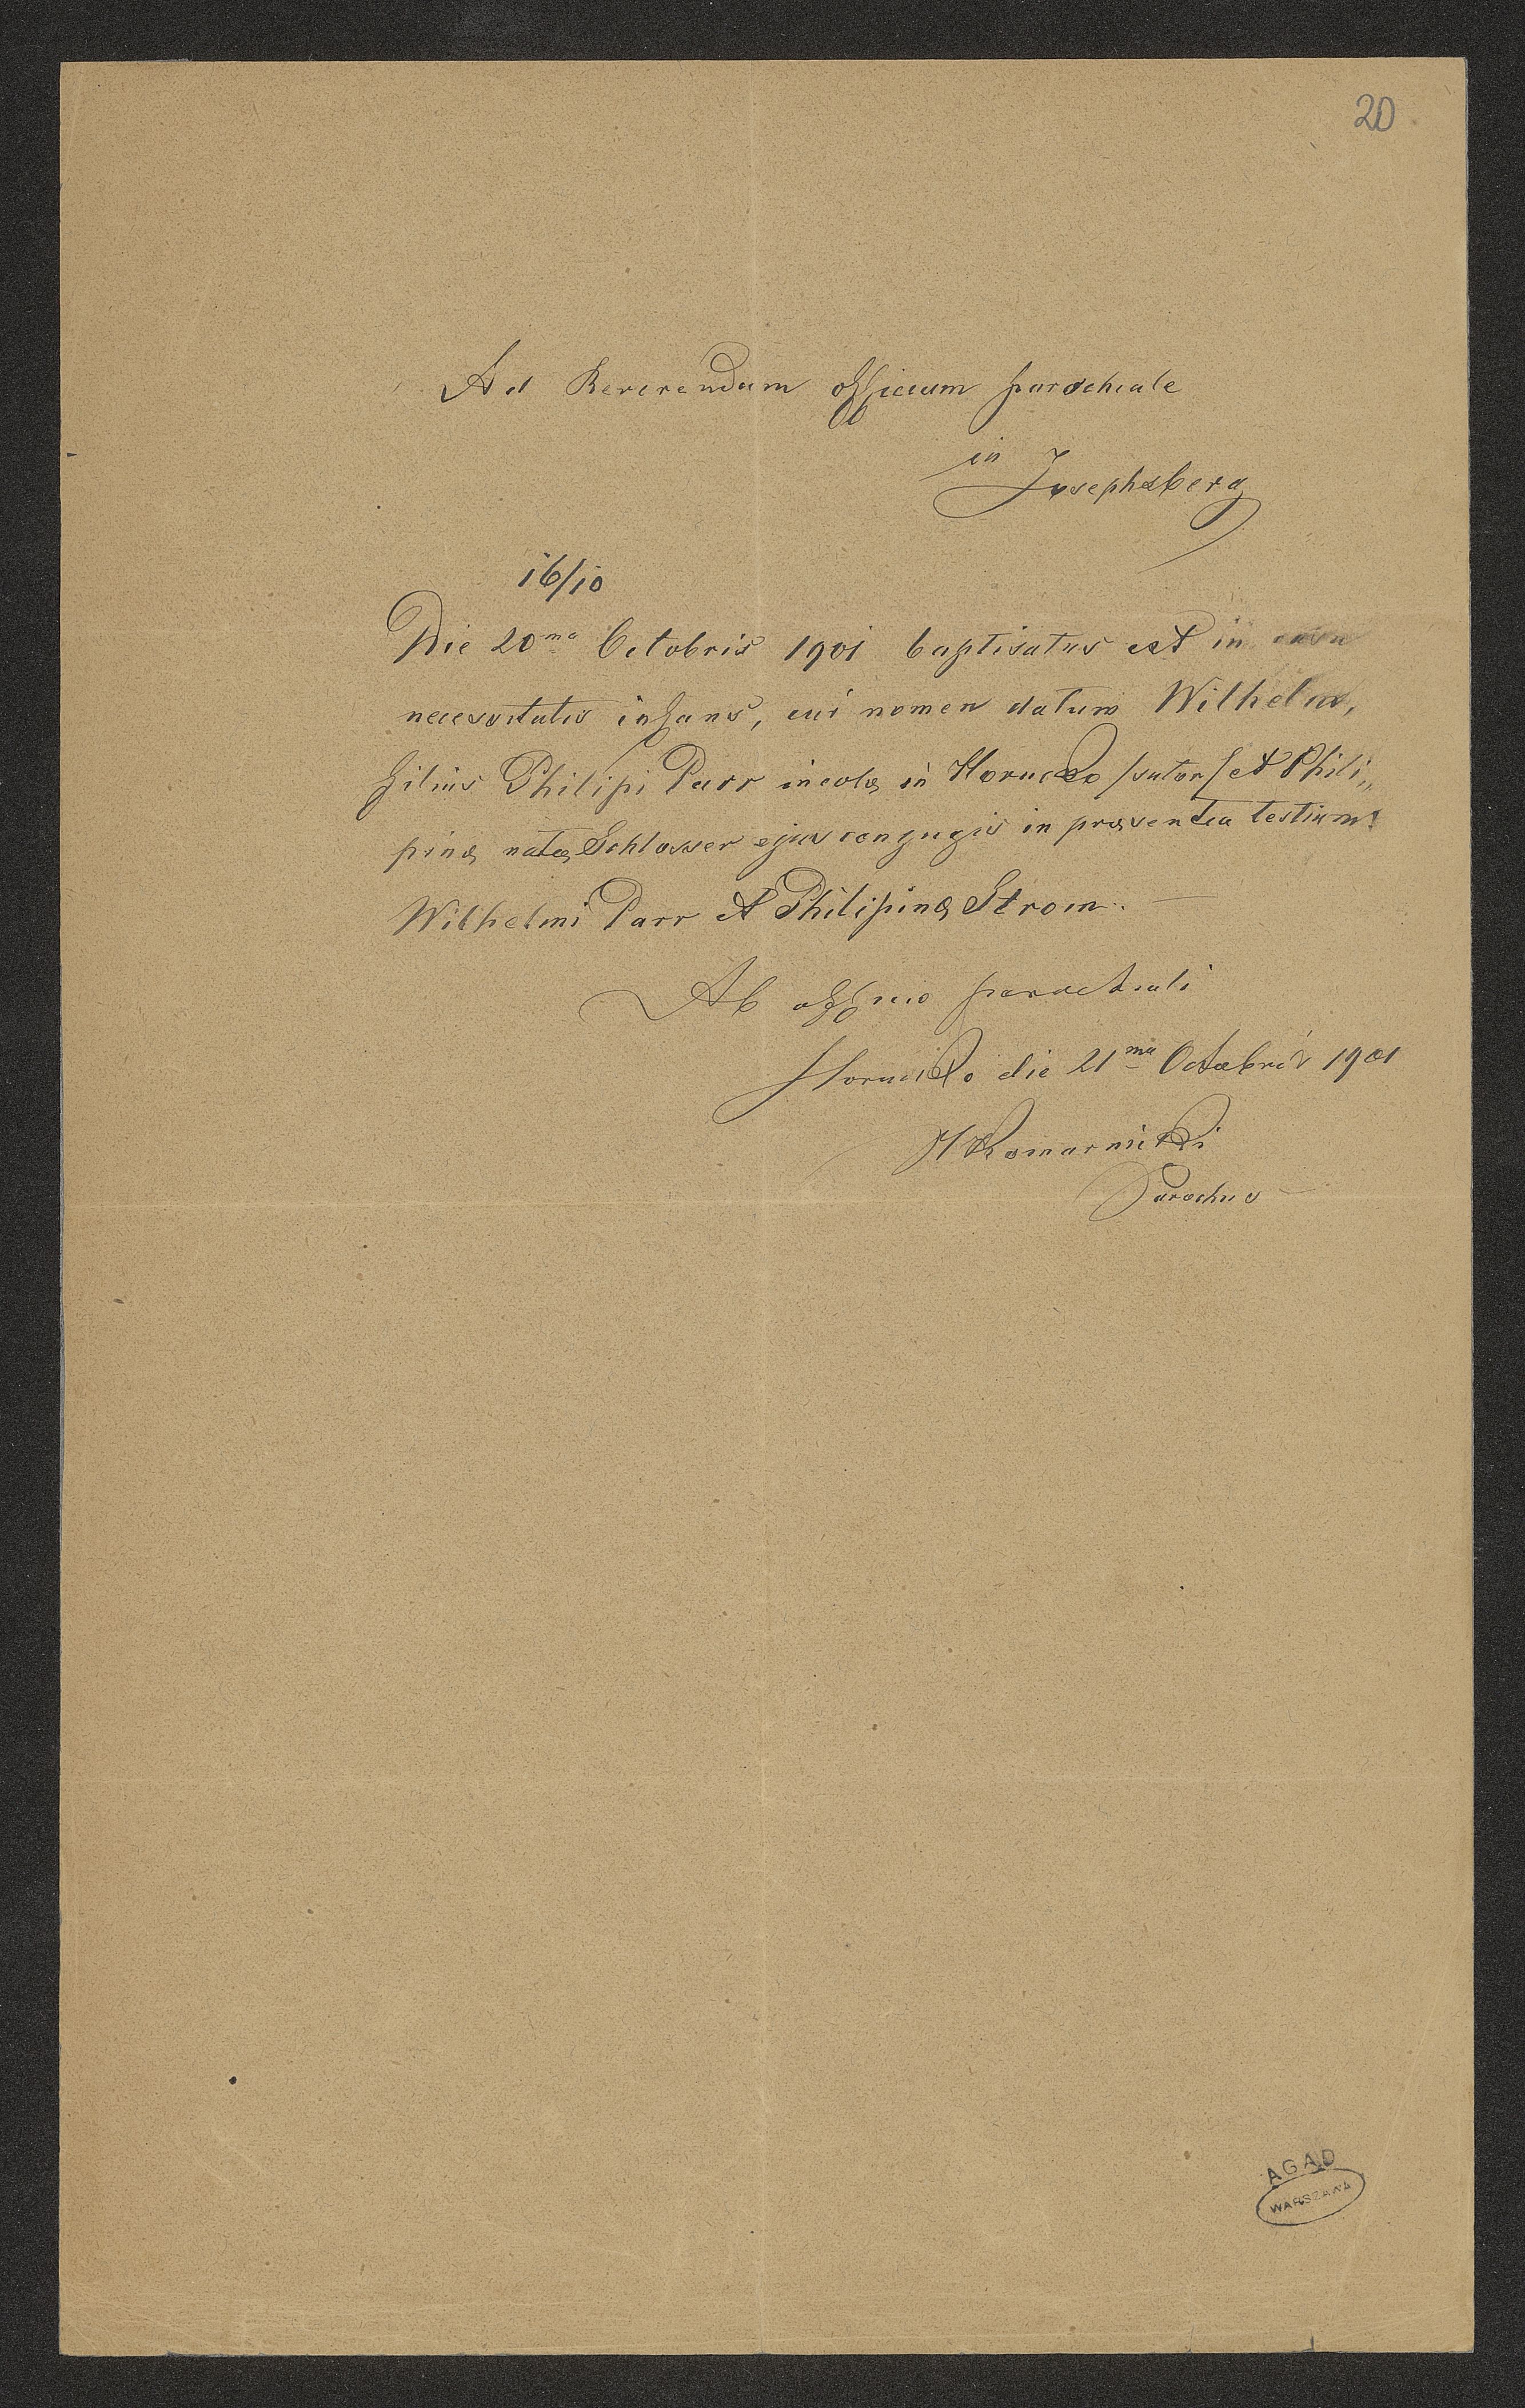 20
Ad Reverendum officium parochiale
in
Josephsberg
16/10
Die 20ma Octobris 1901 baptisatus est in casu
necessitatis infans, cui nomen datum Wilhelm,
filius Philipi Parr incolę in Horucko /sutor/ et Phili„
pinę natę Schlosser ejus conjugis in pręsentia testium:
Wilhelmi Parr et Philipinę Strom. —
Ab officio parochiali
Horucko die 21ma Octobris 1901
H Komarnicki
Parochus
AGAD
WARSZAWA